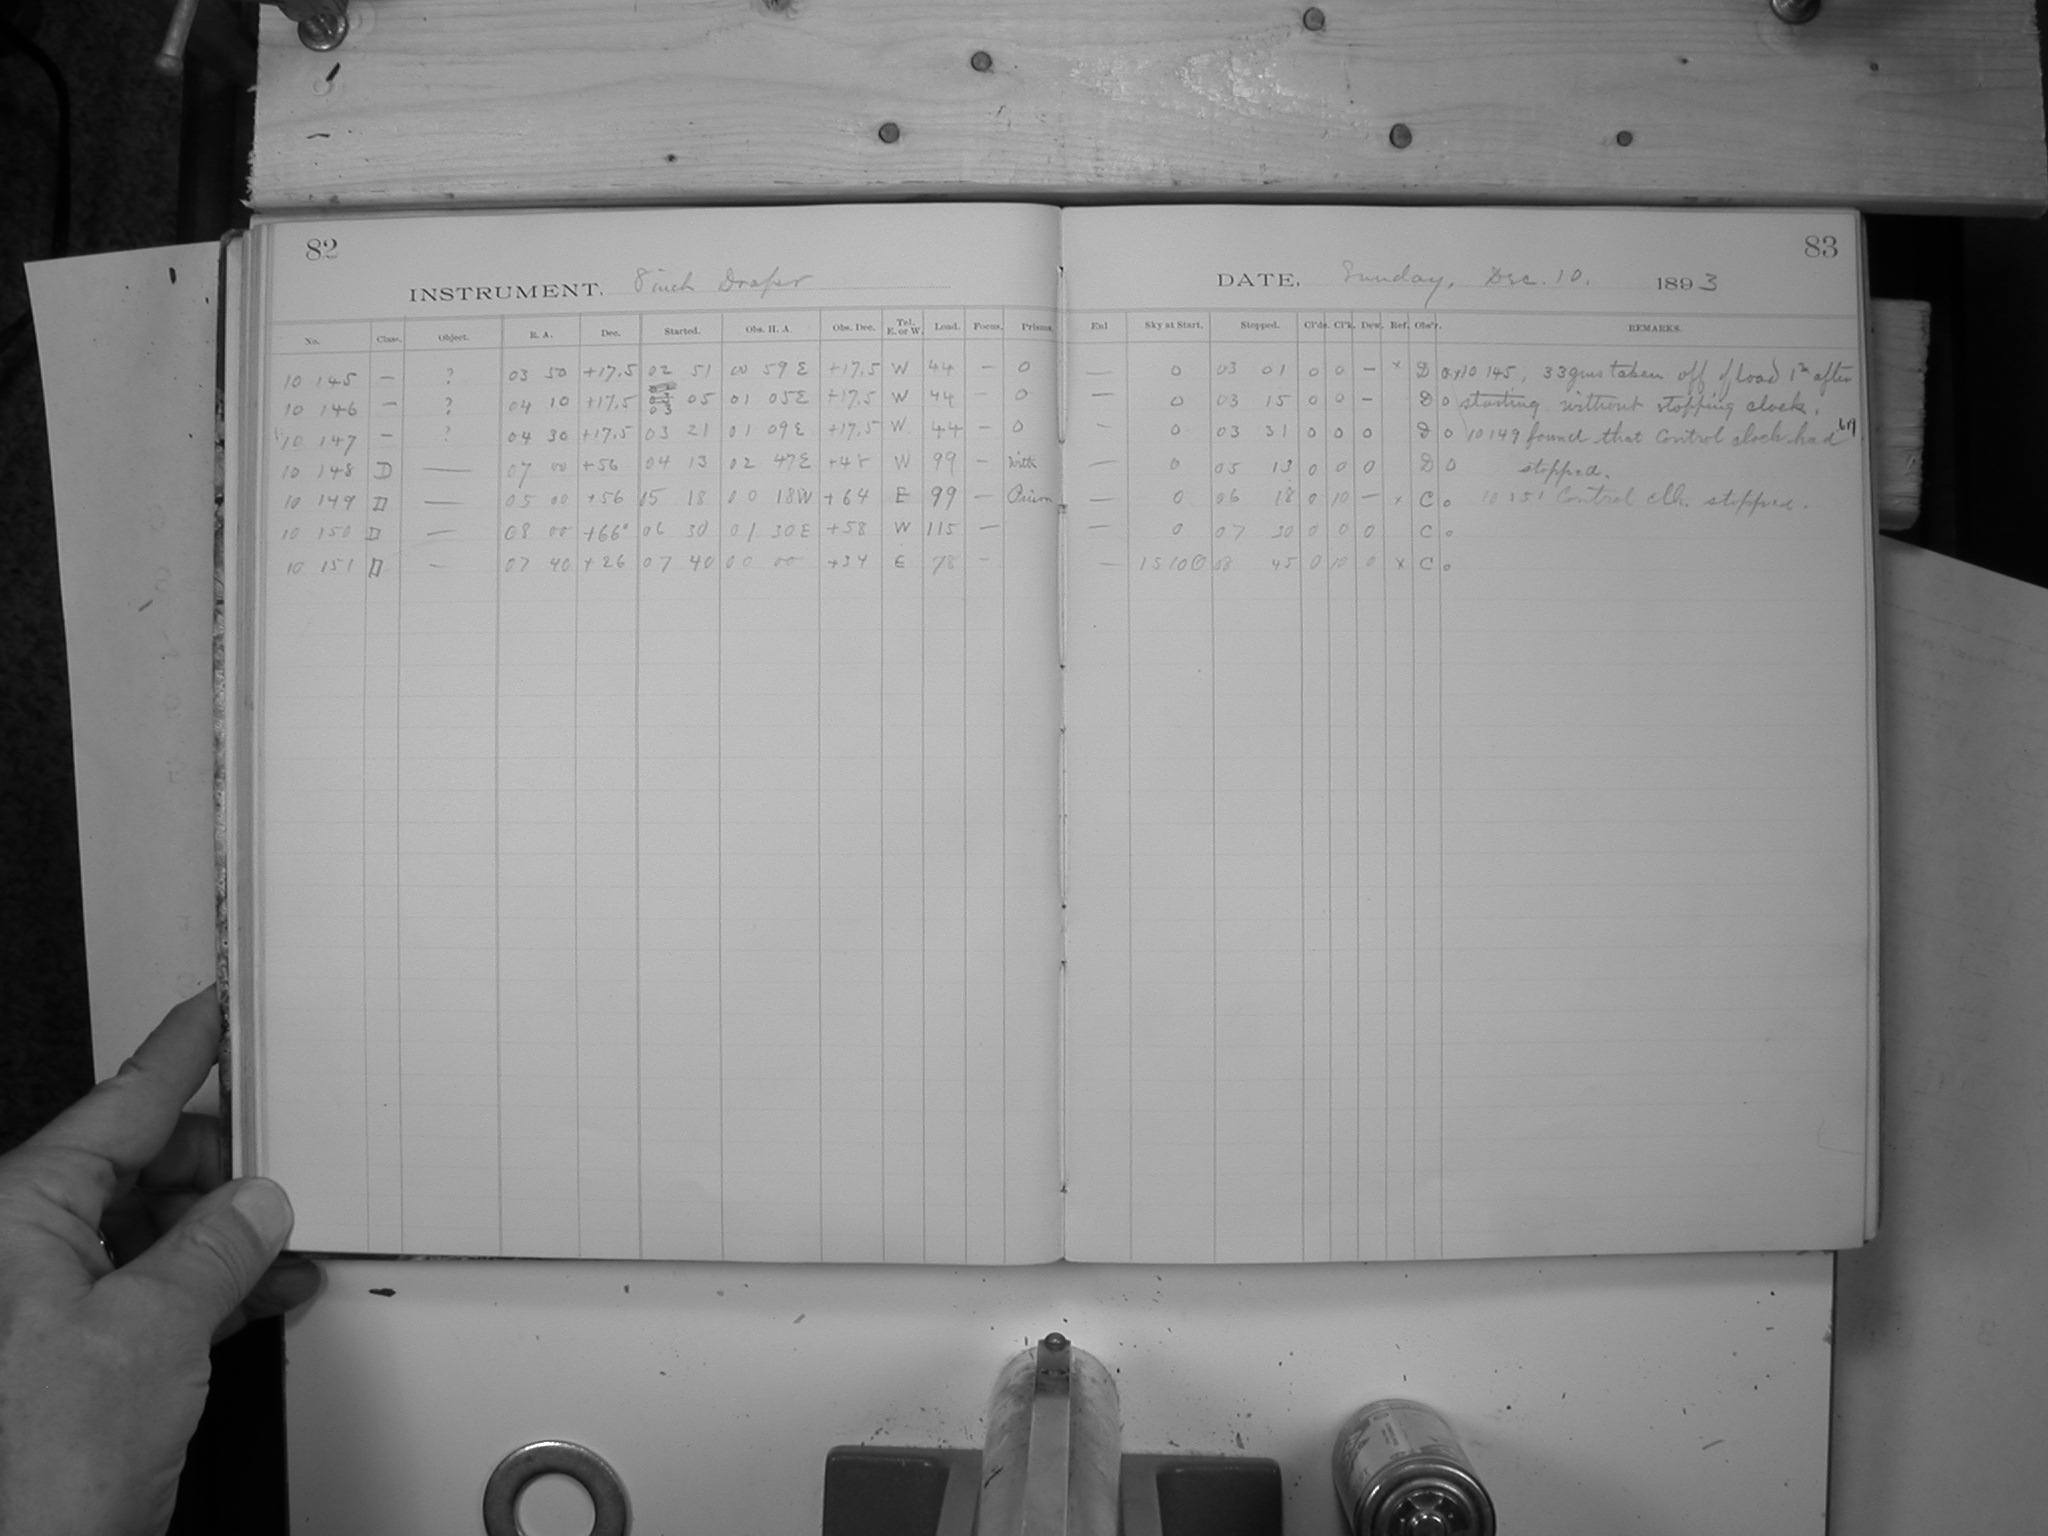 82
83
INSTRUMENT. 8 inch Draper
DATE, Sunday, Dec. 10. 1893
No. Class. Object. R. A. Dec. Started. Obs. H. A. Obs. Dec. Tel. E. or W. Load. Focus. Prisms Enl Sky at Start. Stopped. Cl'ds. Cl'k. Dew. Ref. Obs'r. REMARKS.
10 145 — ? 03 50 +17.5 02 51 00 59 E +17.5 W 44 — 0 — 0 03 01 0 0 — x D 0 x10 145, 33 gms taken off of load 1m after
10 146 — ? 04 10 +17.5 03 05 01 05 E +17.5 W 44 — 0 — 0 03 15 0 0 — D 0 starting without stopping clock.
10 147 — ? 04 30 +17.5 03 21 01 09 E +17.5 W 44 — 0 — 0 03 31 0 0 0 D 0 10149 found that Control clock had
10 148 D — 07 00 +56 04 13 02 47 E W 99 — with — 0 05 13 0 0 0 D 0 stopped.
10 149 D — 05 00 +56 05 18 00 18 W +64 E 99 — Prism — 0 06 18 0 10 — x C 0 10 151 Control clk. stopped.
10 150 D — 08 00 +66° 06 30 01 30 E +58 W 115 — — 0 07 30 0 0 0 C 0
10 151 D — 07 40 +26 07 40 00 00 +34 E 78 — — 08 45 0 10 0 x C 0